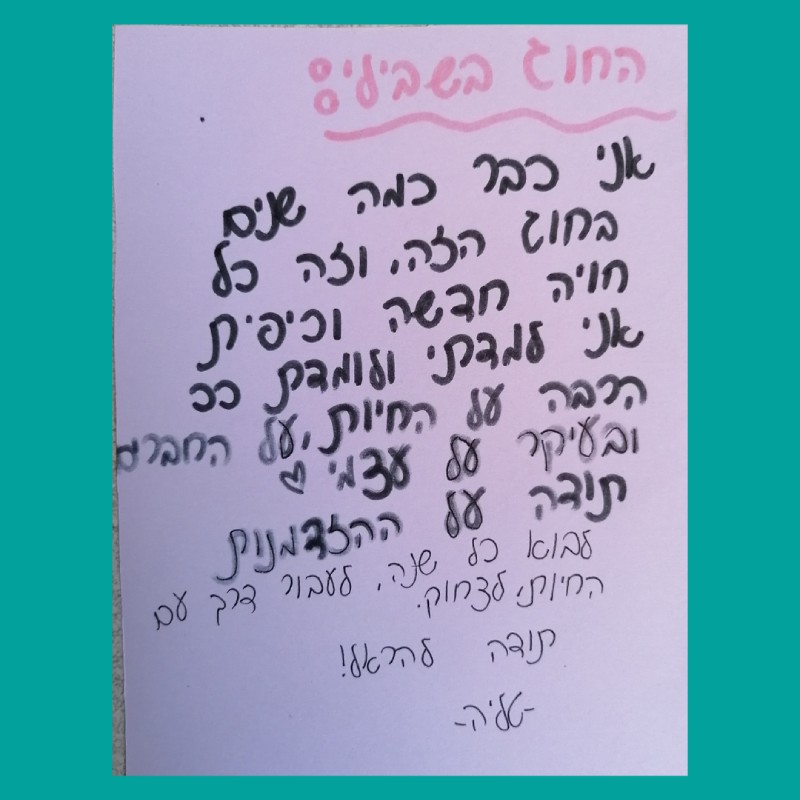 החוג בשבילי:
אני כבר כמה שנים
בחוג הזה, וזה כל
חויה חדשה וכיפית
אני למדתי ולומדת ככ
הרבה על החיות, על החברים
ובעיקר על עצמי ♡
תודה על ההזדמנות
לבוא כל שנה, לעבור דרך עם
החיות, לצחוק.
תודה להראל!
-טליה-